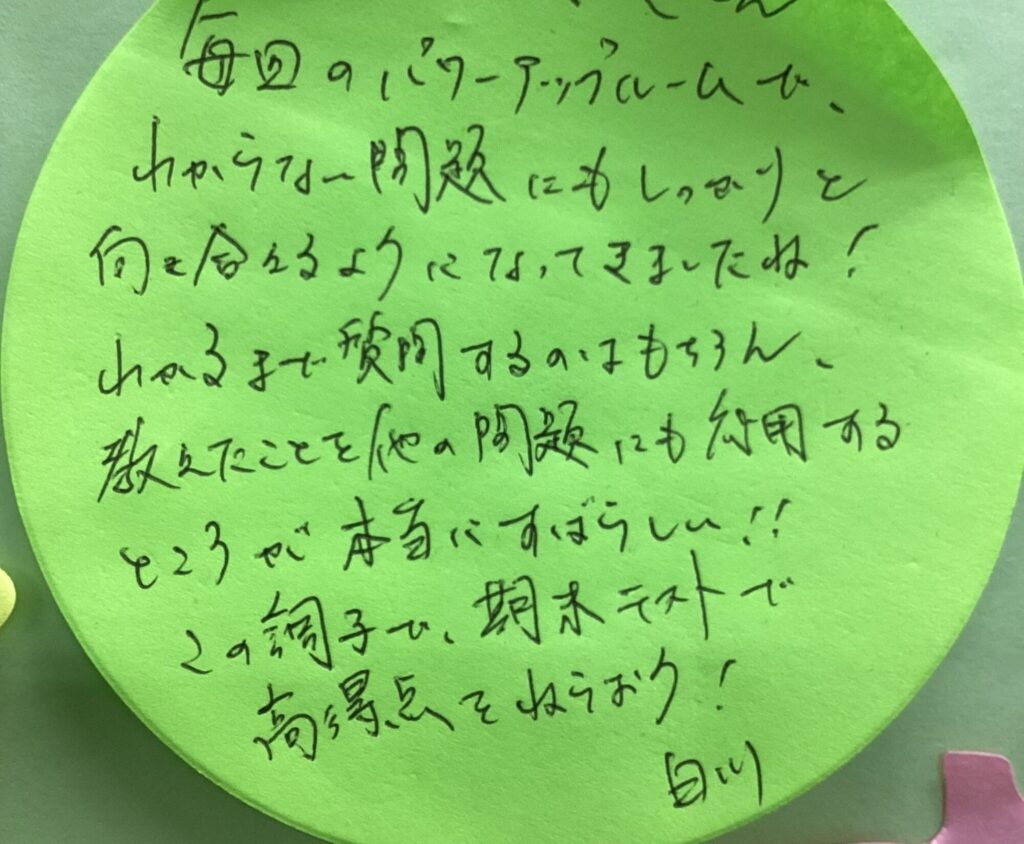 さん
毎回のパワーアップルームで、
わからない問題にもしっかりと
向き合えるようになってきましたね!
わかるまで質問するのはもちろん、
教えたことを他の問題にも応用する
ところが本当にすばらしい!!
この調子で、期末テストで
高得点をねらおう!
白川